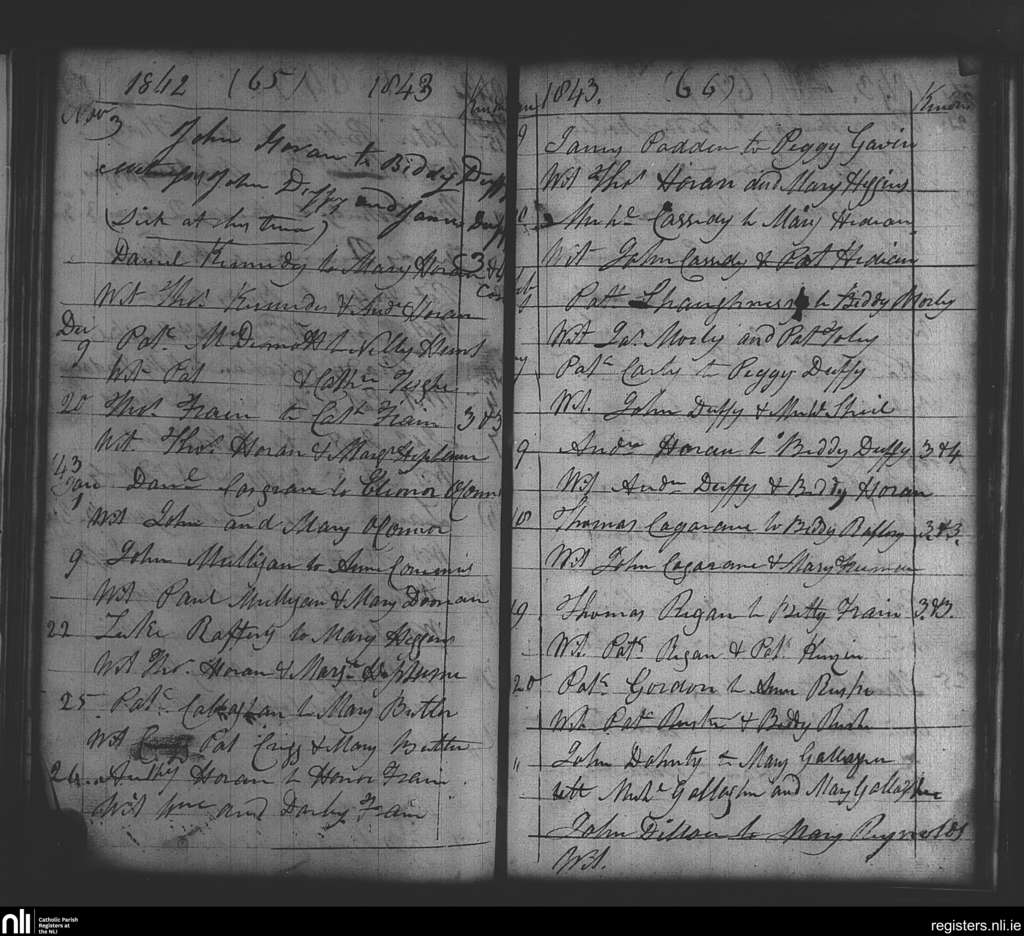 1842 (65) 1843
Nov 3
John Horan to Biddy Duffy
witnesses John Duffy and Duffy
(Sick at this time)
Daniel Kennedy to Mary Horan 3 & 4
Wit Thos Kennedy & Andw Horan
Der 9 Patk McDermott to Nelly Hunt
Wit Pat & Cathn Tighe
20 Thos Frain to Cath Frain 3 & 3
Wit. Thos Horan & Margt
'43 Jan 1 Danl Cosgrave to Elinor OConn
Wit John and Mary OConnor
9 John Mulligan to Anne
Wit Paul Mulligan & Mary Doonan
22 Luke Rafferty to Mary Higgins
Wit Thos. Horan & Margt
25 Patk Callaghan to Mary Butler
Wit Pat Crigg & Mary Butler
26 Horan to Honor Frain
Wit Wm and Darby Frain
1843. (66)
James Padden to Peggy Gavin
Wit Thos Horan and Mary Higgins
Michl Cassidy to Mary Hidian
Wit John Cassidy & Pat Hidian
Patk Shaughnessy to Biddy Morly
Wit Jas Morly and Pat Foley
Patk Carly to Peggy Duffy
Wit. John Duffy & Michl Sheil
9 Andw Horan to Biddy Duffy 3 & 4
Wit Andw Duffy & Biddy Horan
10 Thomas to Biddy Raftery 3 & 3.
Wit John & Mary Freeman
19 Thomas Regan to Betty Frain 3 & 3.
Wit Patk Regan & Patk
20 Patk Gordon to Anne Ruske
Wit Patk Ruske & Biddy Ruske
" John Doherty to Mary Gallagher
Wit Michl Gallagher and Mary Gallagher
John Dillon to Mary Reynolds
Wit.
nli Catholic Parish
Registers at
the NLI
registers.nli.ie